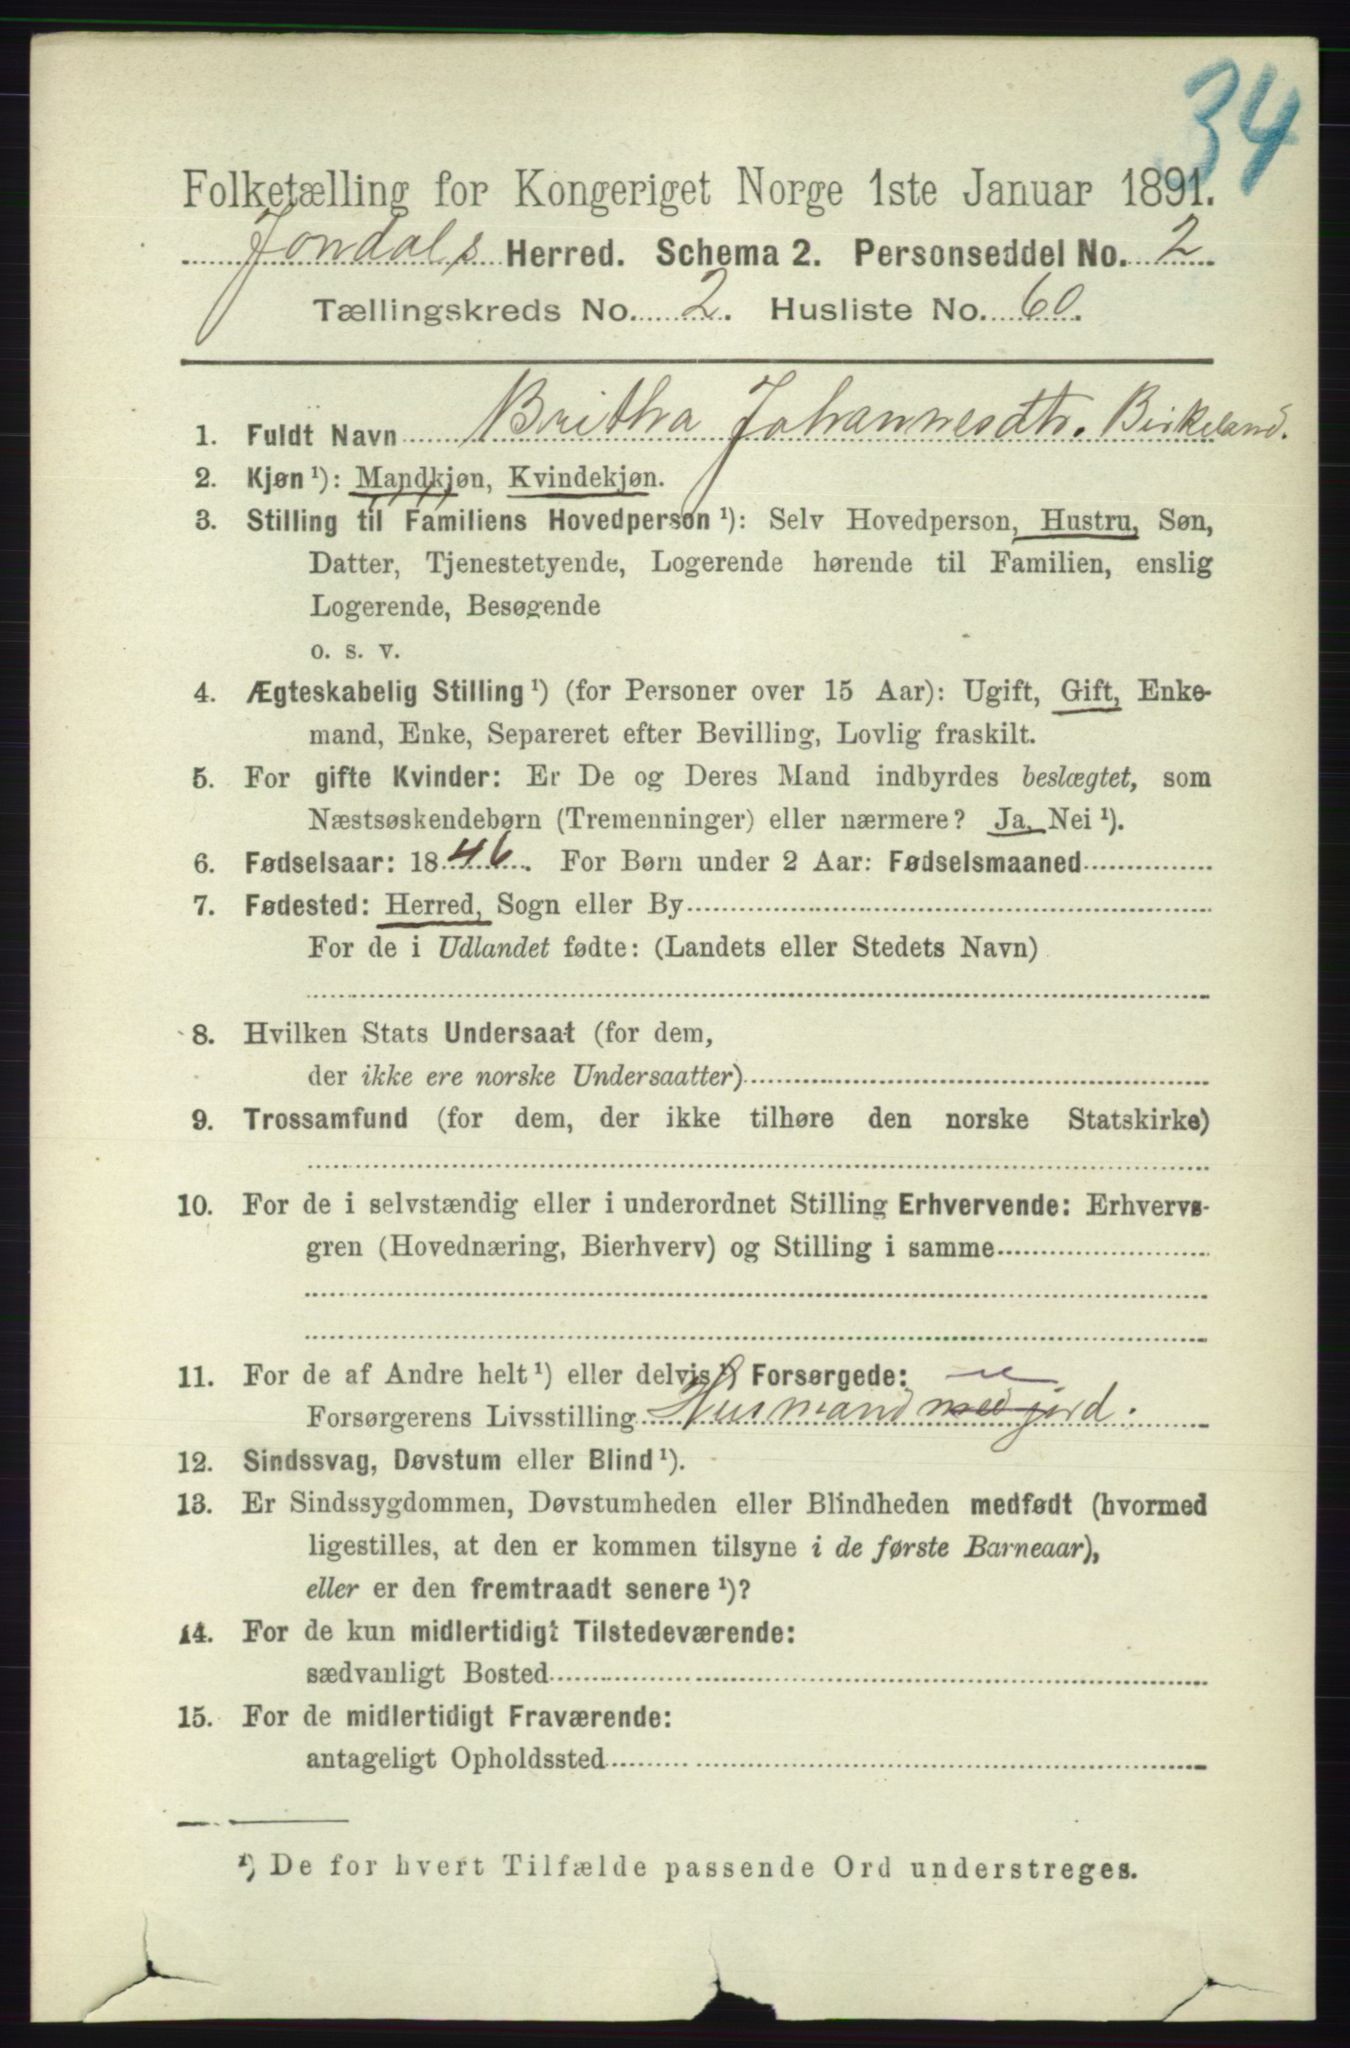 34
Folketælling for Kongeriget Norge 1ste Januar 1891.
Jondals Herred. Schema 2. Personseddel No. 2
Tællingskreds No. 2. Husliste No. 60.
1. Fuldt Navn Britha Johannesdtr. Birkeland.
2. Kjøn¹): Mandkjøn, Kvindekjøn.
3. Stilling til Familiens Hovedperson¹): Selv Hovedperson, Hustru, Søn,
Datter, Tjenestetyende, Logerende hørende til Familien, enslig
Logerende, Besøgende
o. s. v.
4. Ægteskabelig Stilling¹) (for Personer over 15 Aar): Ugift, Gift, Enke-
mand, Enke, Separeret efter Bevilling, Lovlig fraskilt.
5. For gifte Kvinder: Er De og Deres Mand indbyrdes beslægtet, som
Næstsøskendebørn (Tremenninger) eller nærmere? Ja, Nei¹).
6. Fødselsaar: 1846. For Børn under 2 Aar: Fødselsmaaned
7. Fødested: Herred, Sogn eller By
For de i Udlandet fødte: (Landets eller Stedets Navn)
8. Hvilken Stats Undersaat (for dem,
der ikke ere norske Undersaatter)
9. Trossamfund (for dem, der ikke tilhøre den norske Statskirke)
10. For de i selvstændig eller i underordnet Stilling Erhvervende: Erhvervs-
gren (Hovednæring, Bierhverv) og Stilling i samme
11. For de af Andre helt¹) eller delvis¹) Forsørgede:
Forsørgerens Livsstilling Husmand med jord.
12. Sindssvag, Døvstum eller Blind¹).
13. Er Sindssygdommen, Døvstumheden eller Blindheden medfødt (hvormed
ligestilles, at den er kommen tilsyne i de første Barneaar),
eller er den fremtraadt senere¹)?
14. For de kun midlertidigt Tilstedeværende:
sædvanligt Bosted
15. For de midlertidigt Fraværende:
antageligt Opholdssted
¹) De for hvert Tilfælde passende Ord understreges.